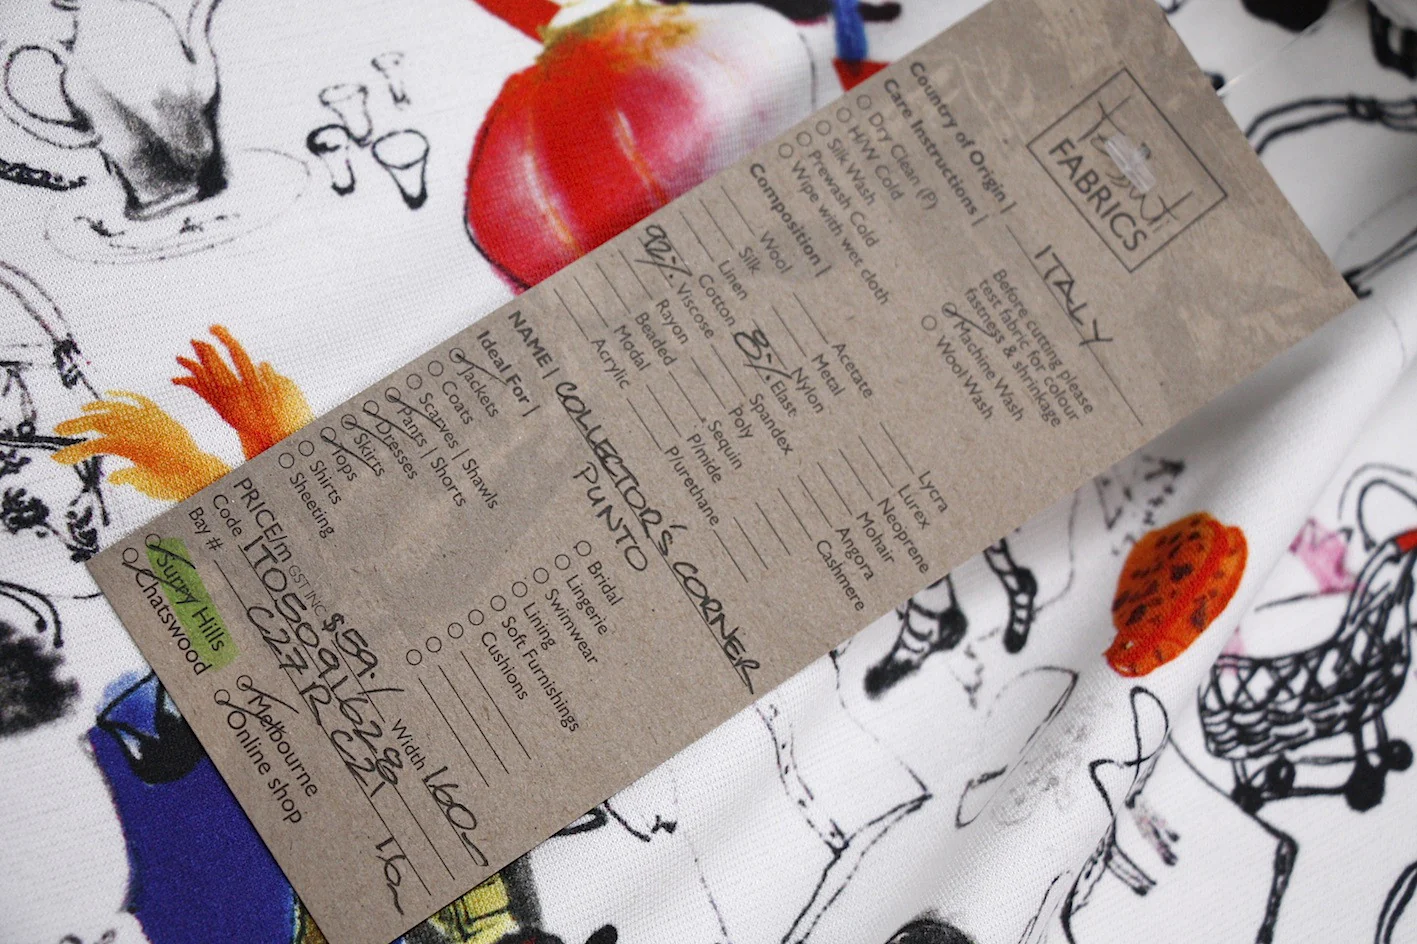 Tessuti
FABRICS
Country of Origin | ITALY
Care Instructions |
Before cutting please
test fabric for colour
fastness & shrinkage
Dry Clean (P)
H/W Cold
Silk Wash
Prewash Cold
Wipe with wet cloth
Machine Wash
Wool Wash
Composition |
Wool
Silk
Linen
Cotton
92% Viscose
Rayon
Beaded
Modal
Acrylic
Acetate
Metal
Nylon
8% Elast
Spandex
Poly
Sequin
P/mide
P/urethane
Lycra
Lurex
Neoprene
Mohair
Angora
Cashmere
NAME | COLLECTOR'S CORNER
PUNTO
Ideal For |
Jackets
Coats
Scarves | Shawls
Pants | Shorts
Dresses
Skirts
Tops
Shirts
Sheeting
Bridal
Lingerie
Swimwear
Lining
Soft Furnishings
Cushions
PRICE/m GST INC $59./ Width 160
Code ITO50916299
Bay # C27 R C21 1.6m
Surry Hills
Chatswood
Melbourne
Online shop